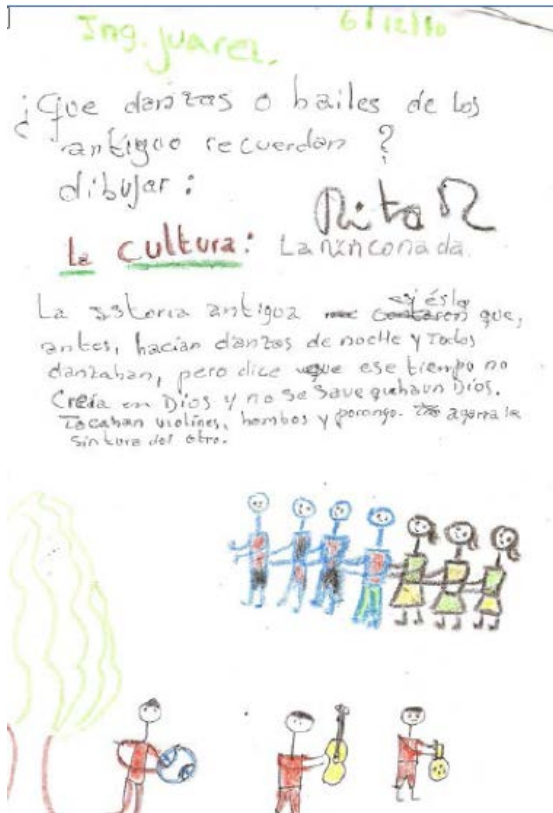 Ing. juarez.
6/12/10
¿Que danzas o bailes de los
antiguo recuerdan?
dibujar:
Rita R
La cultura: La rinconada.
La istoria antigua y ésta que,
antes, hacian danzas de noche y Todos
danzaban, pero dice que ese tiempo no
Creia en Dios y no se save
Tocaban violines, bombos y porongo. agarra la
sintura del otro.